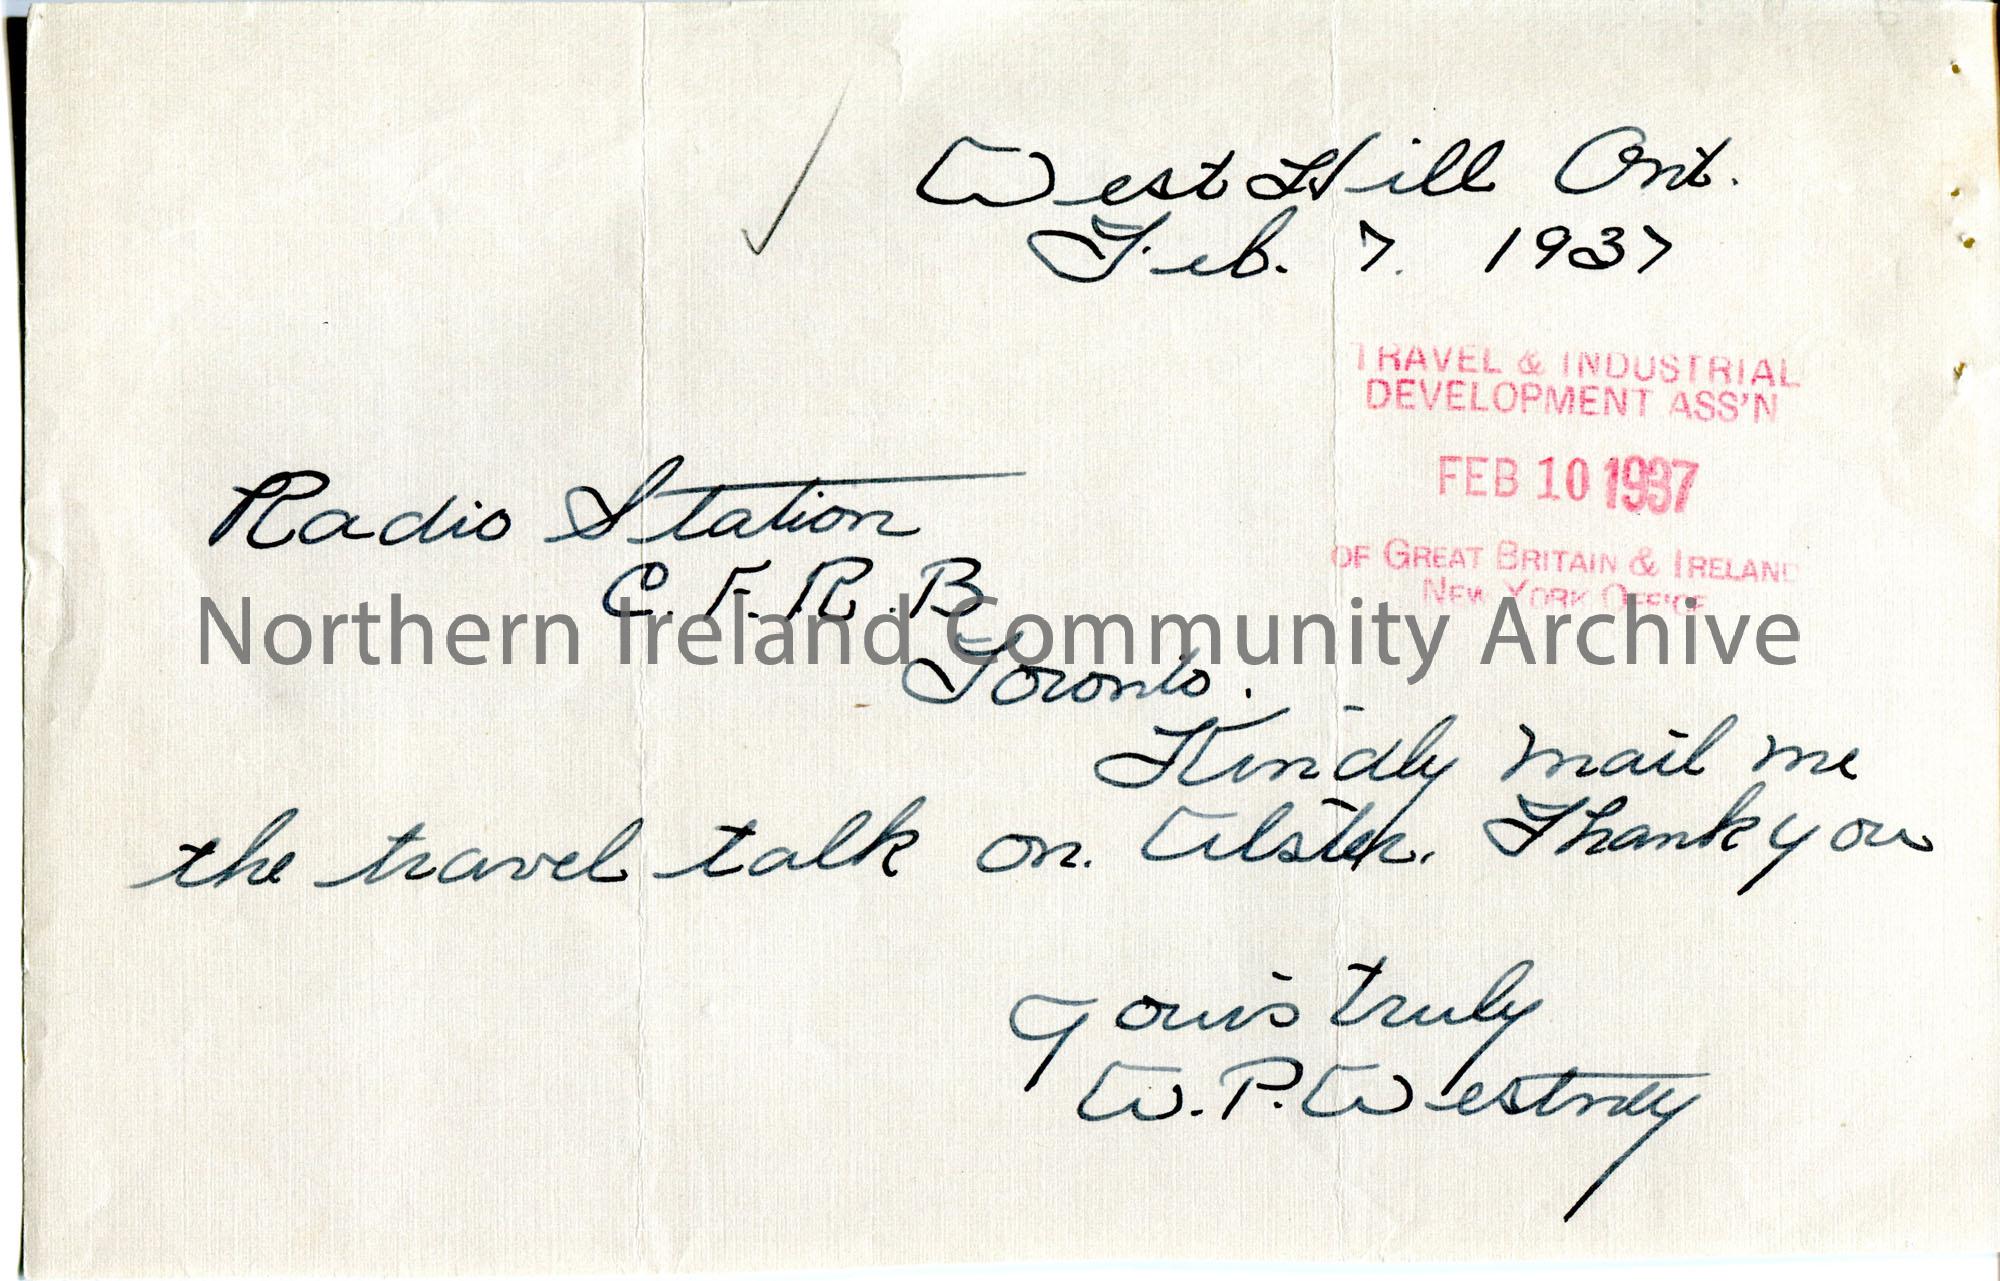 West Hill Ont.
Feb. 7. 1937
TRAVEL & INDUSTRIAL
DEVELOPMENT ASS'N
FEB 10 1937
OF GREAT BRITAIN & IRELAND
NEW YORK OFFICE
Radio Station
C. F. R. B
Toronto.
Northern Ireland Community Archive
Kindly mail me
the travel talk on. Ulster. Thank you
Yours truly
W. P. Westney